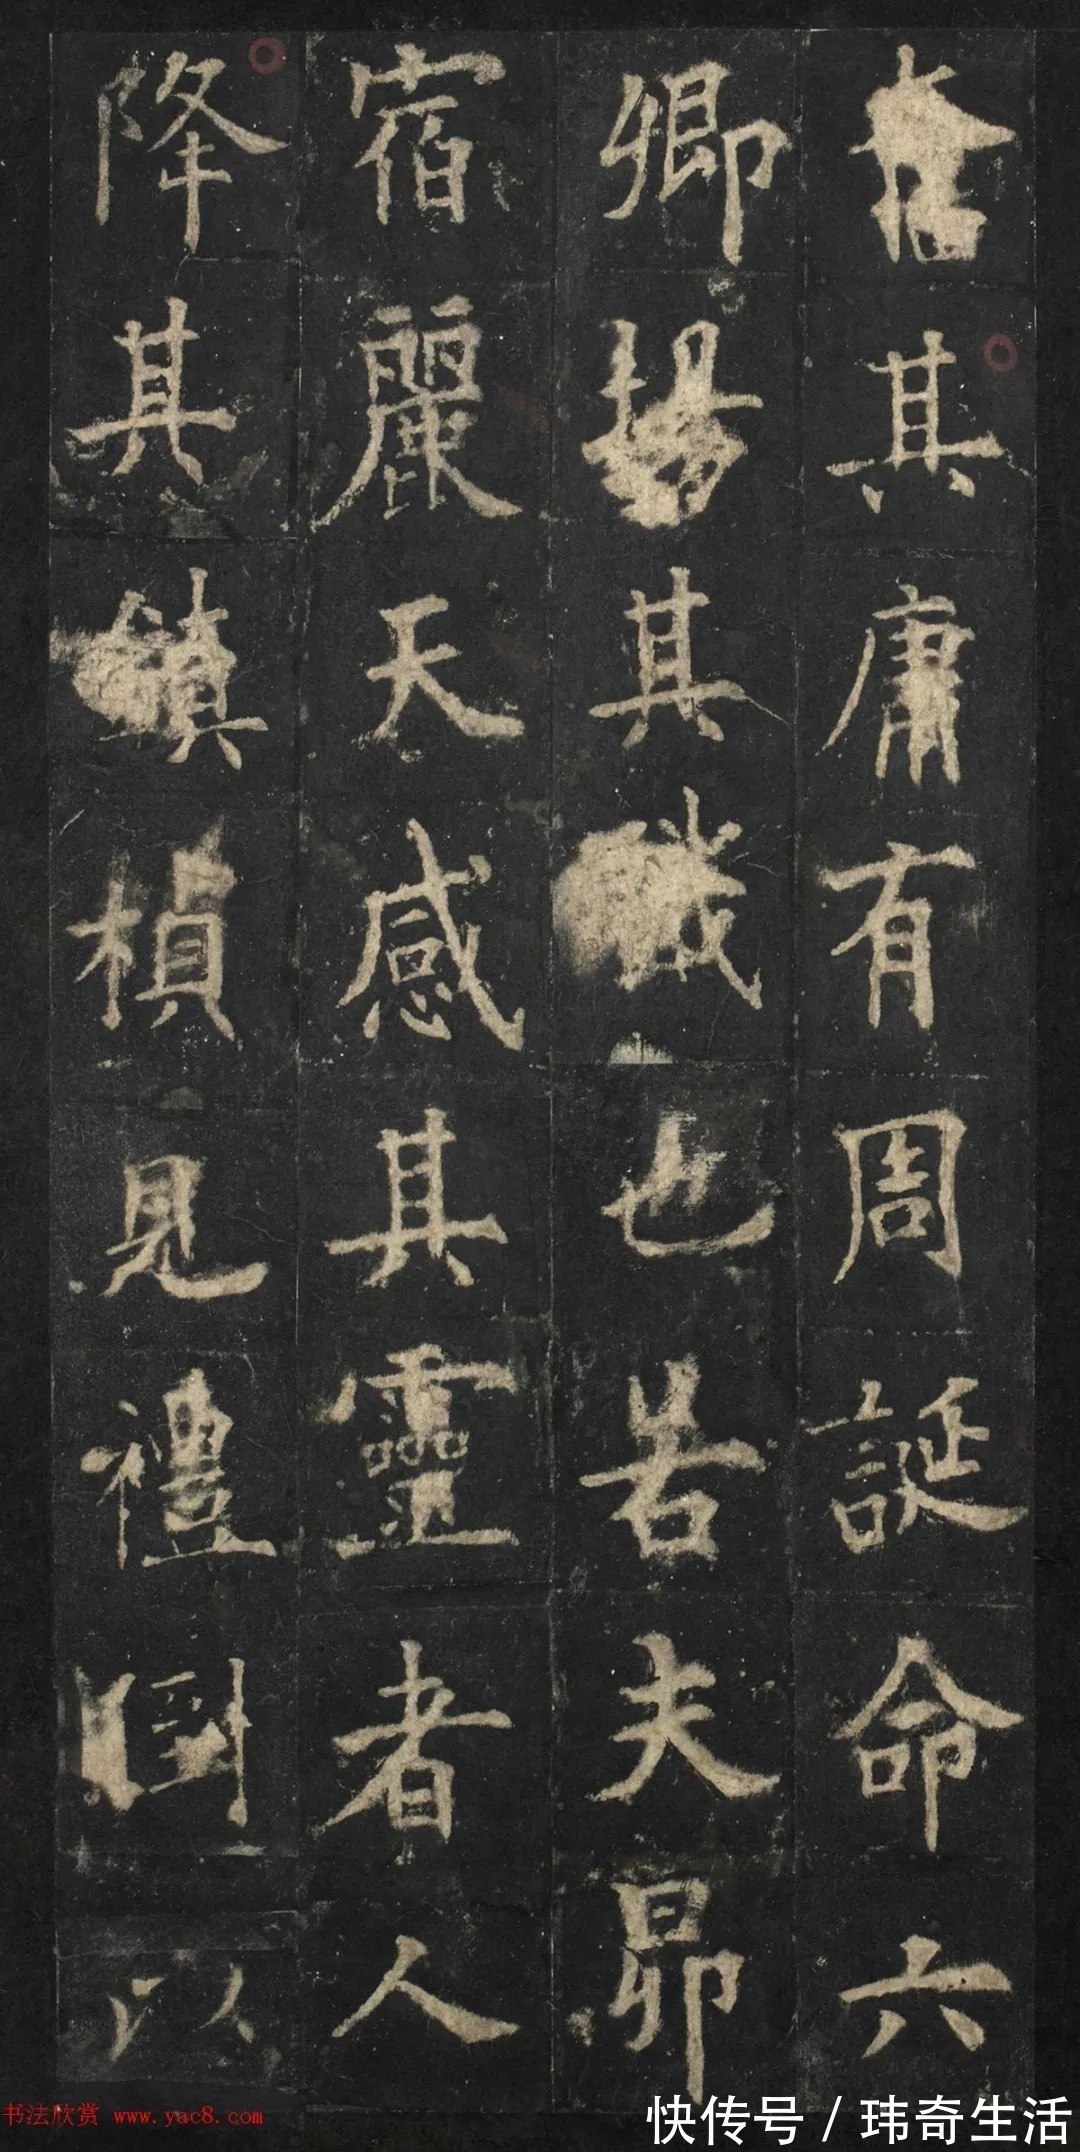 其庸有周誕命六
卿揚其職也若夫昴
宿麗天感其靈者人
降其鎮楨見禮以
书法欣赏 www.yac8.com
快传号 / 玮奇生活